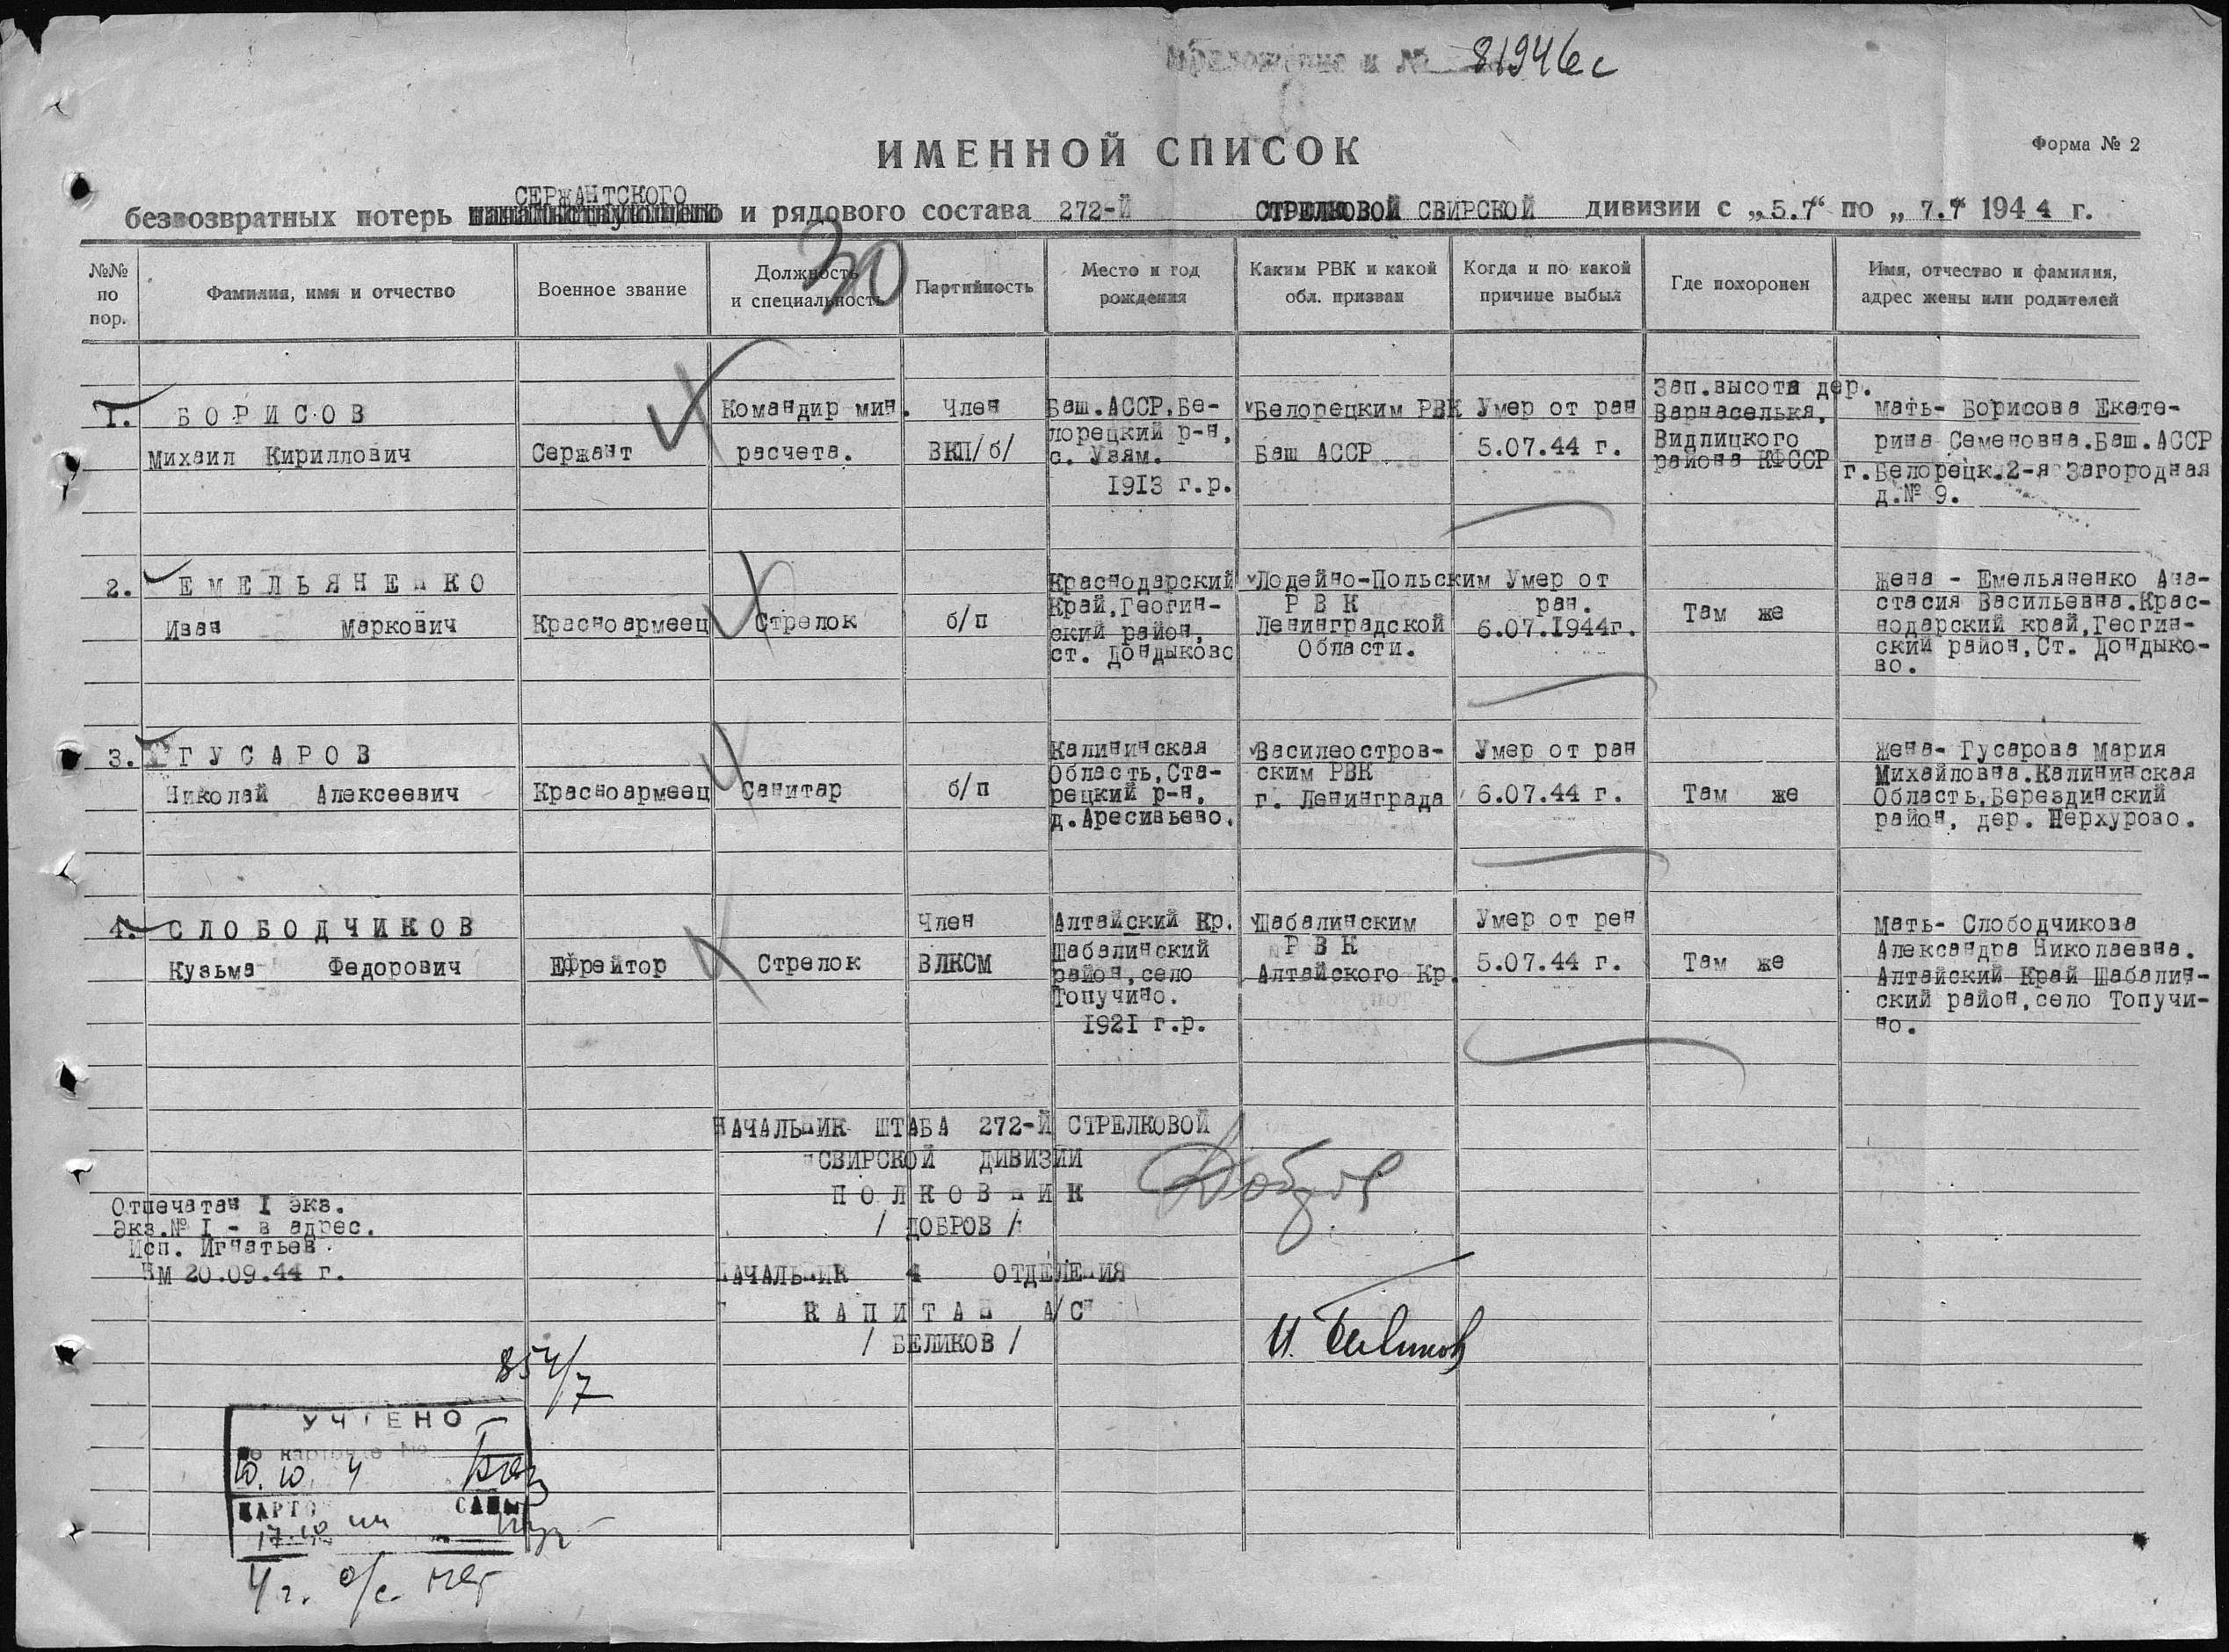 Приложение к № 81946с
ИМЕННОЙ СПИСОК
Форма № 2
СЕРЖАНТСКОГО
безвозвратных потерь начальствующего и рядового состава 272-Й СТРЕЛКОВОЙ СВИРСКОЙ дивизии с „5.7“ по „7.7“ 1944 г.
30
№№ по пор.
Фамилия, имя и отчество
Военное звание
Должность и специальность
Партийность
Место и год рождения
Каким РВК и какой обл. призван
Когда и по какой причине выбыл
Где похоронен
Имя, отчество и фамилия, адрес жены или родителей
1. БОРИСОВ
Михаил Кириллович
Сержант
Командир мин.
расчета.
Член
ВКП/б/
Баш.АССР,Бе-
лорецкий р-н,
с. Узям.
1913 г.р.
Белорецким РВК
Баш АССР
Умер от ран
5.07.44 г.
Зап.высота дер.
Варнаселька,
Видлицкого
района КФССР
мать- Борисова Екате-
рина Семеновна.Баш.АССР
г.Белорецк.2-я Загородная
д.№ 9.
2. ЕМЕЛЬЯНЕНКО
Иван Маркович
Красноармеец
Стрелок
б/п
Краснодарский
Край,Геогин-
ский район,
ст. Дондыково
Лодейно-Польским
РВК
Ленинградской
Области.
Умер от
ран.
6.07.1944г.
Там же
Жена - Емельяненко Ана-
стасия Васильевна.Крас-
нодарский край,Геогин-
ский район,Ст. Дондыко-
во.
3. ГУСАРОВ
Николай Алексеевич
Красноармеец
Санитар
б/п
Калининская
Область,Ста-
рецкий р-н,
д.Аресивьево.
Василеостров-
ским РВК
г. Ленинграда
Умер от ран
6.07.44 г.
Там же
Жена- Гусарова Мария
Михайловна.Калининская
Область,Берездинский
район, дер. Перхурово.
4. СЛОБОДЧИКОВ
Кузьма Федорович
Ефрейтор
Стрелок
Член
ВЛКСМ
Алтайский Кр.
Шабалинский
район,село
Топучино.
1921 г.р.
Шабалинским
РВК
Алтайского Кр.
Умер от рен
5.07.44 г.
Там же
Мать- Слободчикова
Александра Николаевна.
Алтайский Край Шабалин-
ский район,село Топучи-
но.
НАЧАЛЬНИК ШТАБА 272-Й СТРЕЛКОВОЙ
СВИРСКОЙ ДИВИЗИИ
ПОЛКОВНИК
/ ДОБРОВ /
Добров
Отпечатан 1 экз.
Экз.№ 1 - в адрес.
Исп. Игнатьев.
НМ 20.09.44 г.
НАЧАЛЬНИК 4 ОТДЕЛЕНИЯ
КАПИТАН А/С
/ БЕЛИКОВ /
И. Беликов
854/7
УЧТЕНО
по карточке №
10.10.4
КАРТО
17.10
4 г. о/с нет